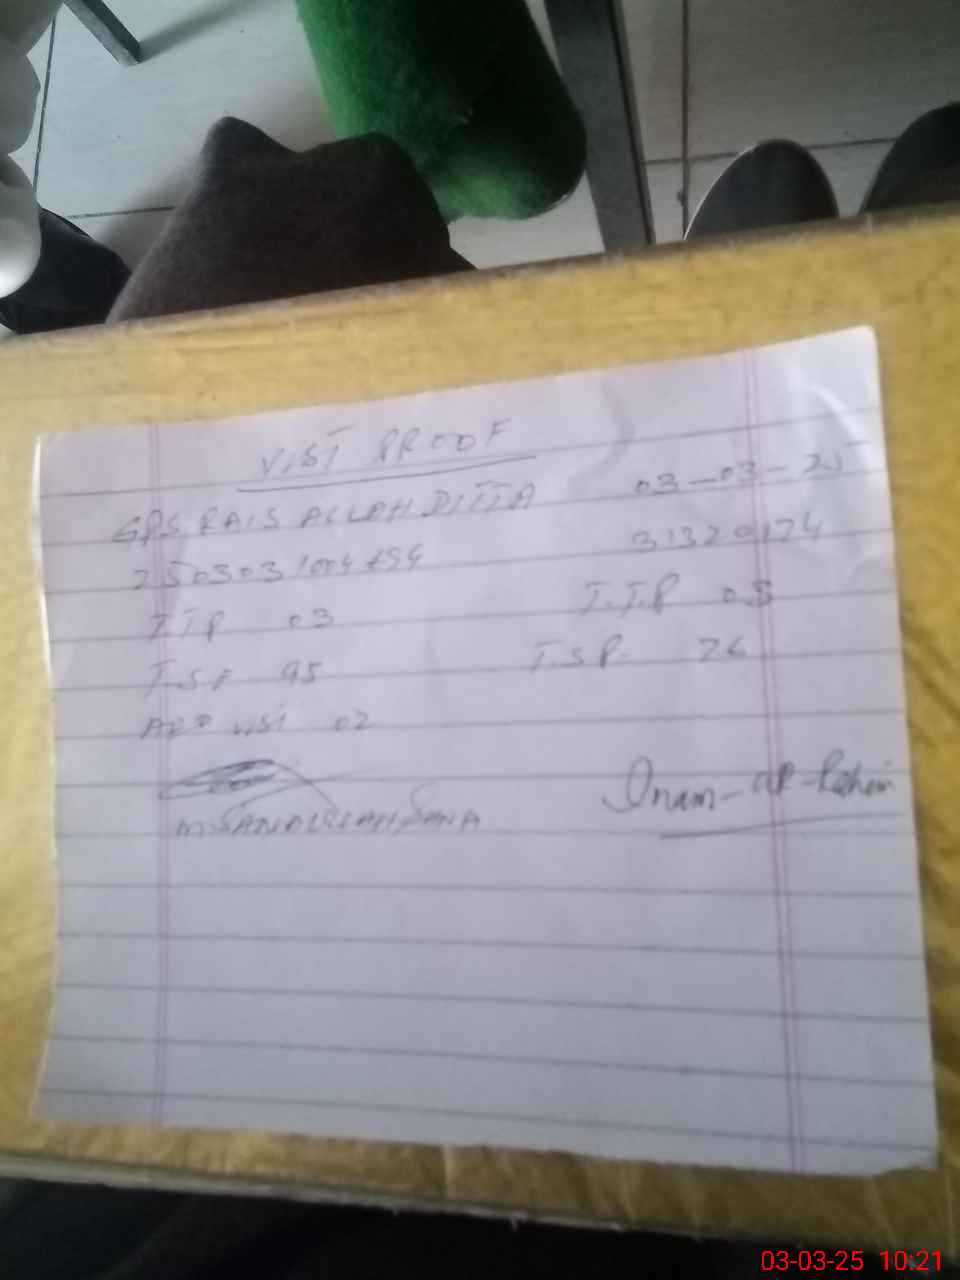 VIST PROOF
GPS RAIS ALLAH DITTA 03-03-25
31320174
T.T.P 03 T.T.P 03
95 T.S.P. 26
VIST 02
M. SANAULLAH SANA Inam-ur-Rehim
03-03-25 10:21